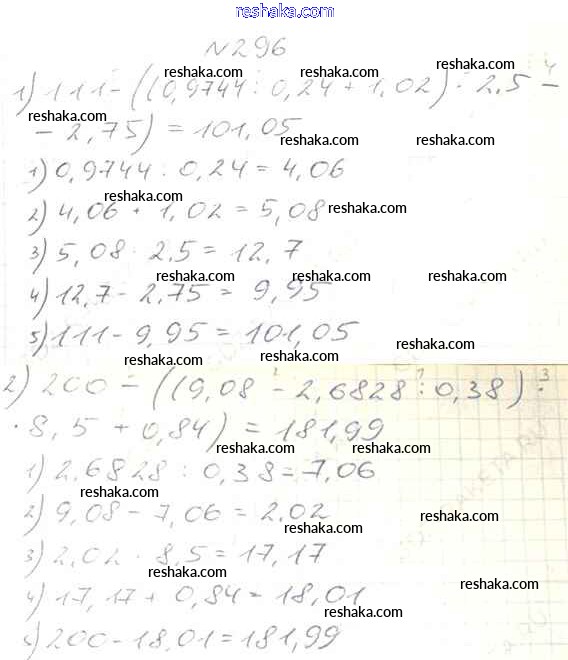 reshaka.com
№296
reshaka.com reshaka.com reshaka.com
1) 111 - ((0,9744 : 0,24 + 1,02) · 2,5 -
reshaka.com
- 2,75) = 101,05
reshaka.com reshaka.com
1) 0,9744 : 0,24 = 4,06
reshaka.com
2) 4,06 + 1,02 = 5,08
reshaka.com
3) 5,08 · 2,5 = 12,7
reshaka.com reshaka.com reshaka.com
4) 12,7 - 2,75 = 9,95
5) 111 - 9,95 = 101,05
reshaka.com
reshaka.com reshaka.com
2) 200 - ((9,08 - 2,6828 : 0,38) ·
· 8,5 + 0,84) = 181,99
reshaka.com reshaka.com
1) 2,6828 : 0,38 = 7,06
reshaka.com
2) 9,08 - 7,06 = 2,02
reshaka.com
reshaka.com
3) 2,02 · 8,5 = 17,17
reshaka.com
reshaka.com
4) 17,17 + 0,84 = 18,01
reshaka.com
5) 200 - 18,01 = 181,99